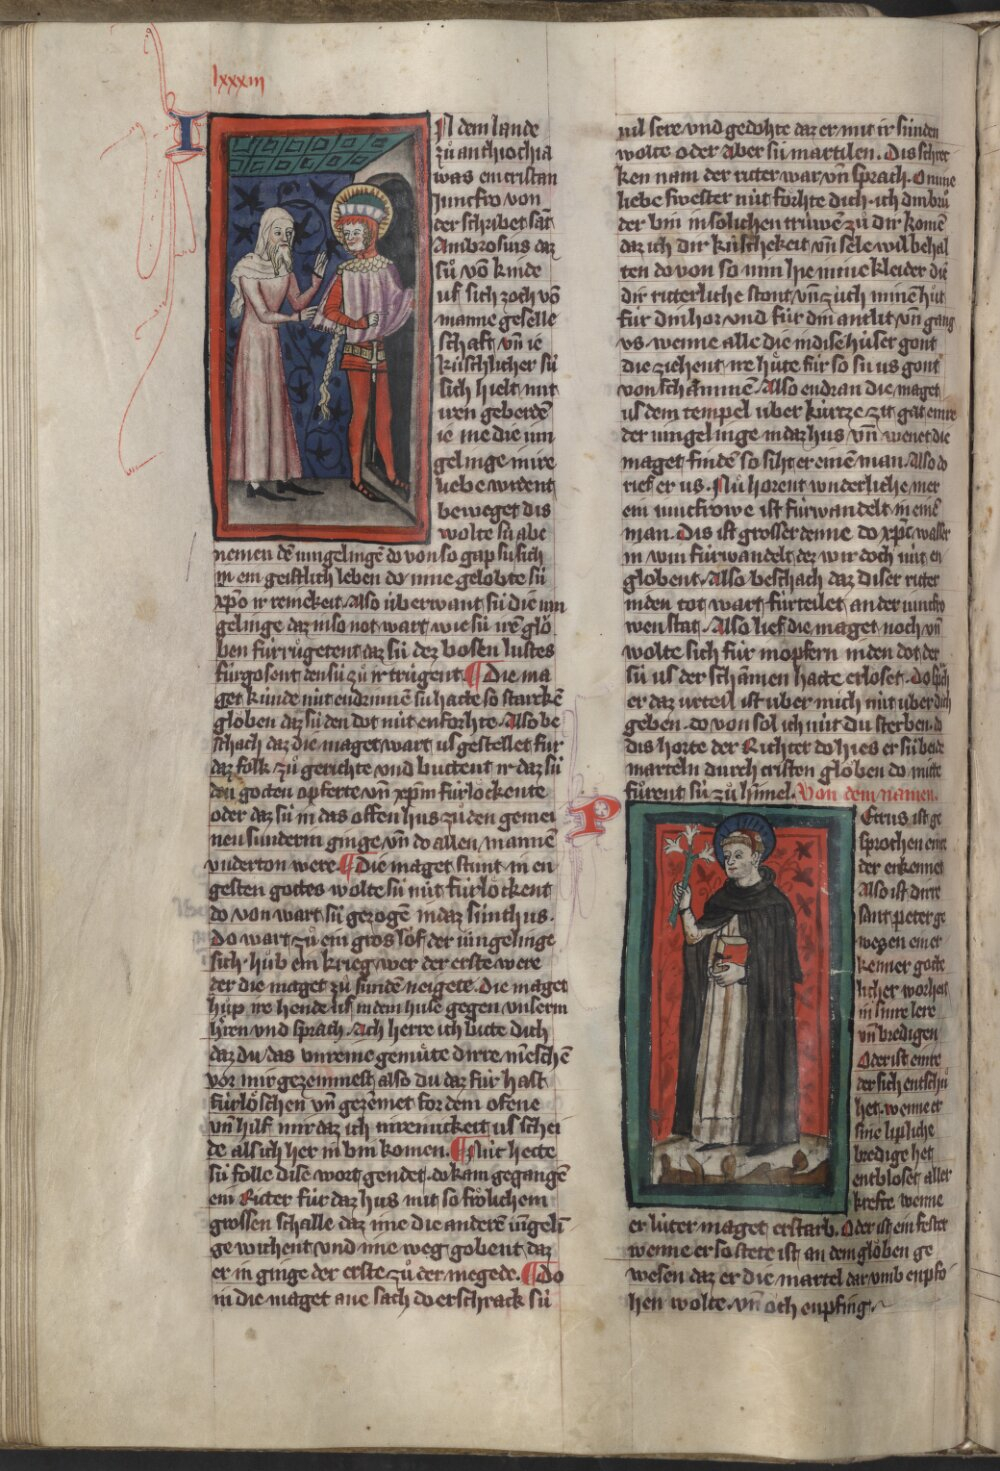 lxxxiii
IN dem lande
zů anthiochia
was ein cristan
juncfro von
der schribet sāt
Ambrosius daz
sü vō kinde
uf sich zoch vō
manne geselle
schaft vn̄ ie
küschlicher sü
sich hielt mit
iren geberdē
ie me die iun
gelinge in ire
liebe wrdent
beweget dis
wolte sü abe
nemen dē iungelingē do von so gap sü sich
in ein geistlich leben do inne gelobte sü
xp̄o ir reinekeit. Also überwant sü die iun
gelinge daz in so not wart wie sü irē glo
ben für rügetent daz sü dez bosen lustes
fürgosent den sü zů ir trügent. ¶ Die ma
get kunde nüt endrinnē sü hatte so starckē
globen daz sü den dot nüt enforhte. Also be
schach daz die maget wart us gestellet für
daz folk zů gerichte vnd buttent ir daz sü
den gotten opferte vn̄ xp̄m fürlockente
oder daz sü in das offen hus zů den gemei
nen sunderin ginge vn̄ do allen mannē
vnderton were ¶ Die maget stunt in en
gesten gottes wolte sü nüt fürlöckent
do von wart sü gezogē in daz sünthus.
Do wart zů ein gros lof der iüngelinge
sich hůb ein krieg wer der erste were
der die maget zů sünden neigete. Die maget
hůp ire hende uf in dem huse gegen vnserm
hrren vnd sprach. Ach herre ich bitte dich
daz du das vnreine gemüte dirre mēschē
vor mir gezemmest also du daz für hast
fürlöschen vn̄ gezēmet for dem ofene
vn̄ hilf mir daz ich mi reinickeit us schei
de als ich her in bin komen. ¶ Nüt hette
sü folle dise wort gendet. do kam gegangē
ein Ritter für daz hus mit so frölichem
grossen schalle daz ime die anderē iūgelī
ge wichent vnd ime weg gobent daz
er in ginge der erste zů der megede. ¶ Do
in die maget ane sach do erschrack sü
uil sere vnd gedohte daz er mit ir sünden
wolte oder aber sü martilen. Dis schrec
ken nam der ritter war vn̄ sprach. O mine
liebe swester nüt forhte dich. ich din brů
der bin in solichen trüwē zů dir komē
daz ich dir küschekeit vn̄ sele wil behal
ten do von so nim hie mine kleider die
dir ritterliche stont vn̄ züch minē hůt
für din hor vnd für din antlit vn̄ gang
vs wenne alle die in dise hüser gont
die ziehent ire hüte für so sü us gont
von schāmmē. Also endran die maget
us dem tempel über kürtze zit gat einre
der iungelinge in daz hus vn̄ wenet die
maget findē so siht er einē man. Also do
rief er us. Nů horent wnderliche mer
ein iuncfrowe ist fürwandelt in einē
man. Dis ist grosser denne do xp̄c wasser
in win fürwandelt dez wir doch nüt en
globent. Also beschach daz diser ritter
in den tot wart fürteilet an der iuncfro
wen stat. Also lief die maget noch vn̄
wolte sich für in opfern in den dot der
sü us der schāmen hatte erloset. do sprach
er daz urteil ist über mich nüt über dich
geben. do von sol ich nüt du sterben. do
dis horte der Richter do hies er sü beide
marteln durch cristen glöben do mitte
fůrent sü zů himel. Von dem namen.
PEtrus ist ge
sprochen eine
der erkennet
Also ist dirre
sant peter ge
wesen ein er
kenner gotte
licher worheit
in sinre lere
vn̄ bredigen
Oder ist einre
der sich entschů
het. wenne er
sine lipliche
bredige het
entblöset aller
krefte wenne
er luter maget erstarb. Oder ist ein fester
wenne er so stete ist an dem glöben ge
wesen daz er die martel dar vmb enpfo
hen wolte. vn̄ och enpfing.